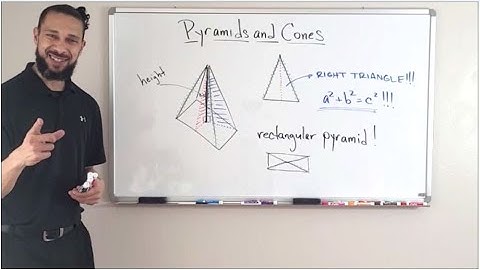 Pyramids and Cones
height
RIGHT TRIANGLE!!!
a² + b² = c² !!!
rectangular pyramid!